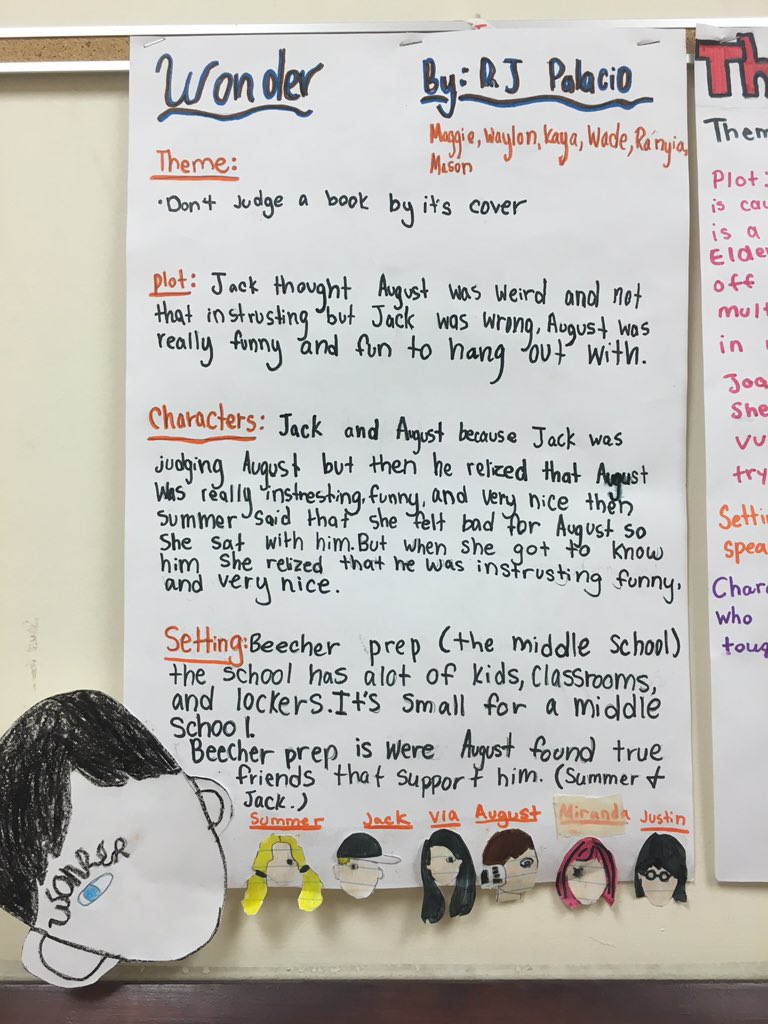 Wonder
By: RJ Palacio
Maggie, Waylon, Kaya, Wade, Ra'nyia,
Mason
Theme:
•Don't Judge a book by it's cover
Plot: Jack thought August was weird and not
that instrusting but Jack was wrong, August was
really funny and fun to hang out with.
Characters: Jack and August because Jack was
judging August but then he relized that August
was really instresting, funny, and very nice then
summer said that she felt bad for August so
She sat with him. But when she got to know
him she relized that he was instrusting funny,
and very nice.
Setting: Beecher prep (the middle School)
the school has alot of kids, Classrooms,
and lockers. It's small for a middle
School.
Beecher prep is were August found true
friends that support him. (Summer &
Jack.)
Summer Jack Via August Miranda Justin
WONDER
Th
Them
Plot:
is cau
is a
Elde
off
mult
in
Joa
She
vu
try
Setti
spea
Chara
who
toug